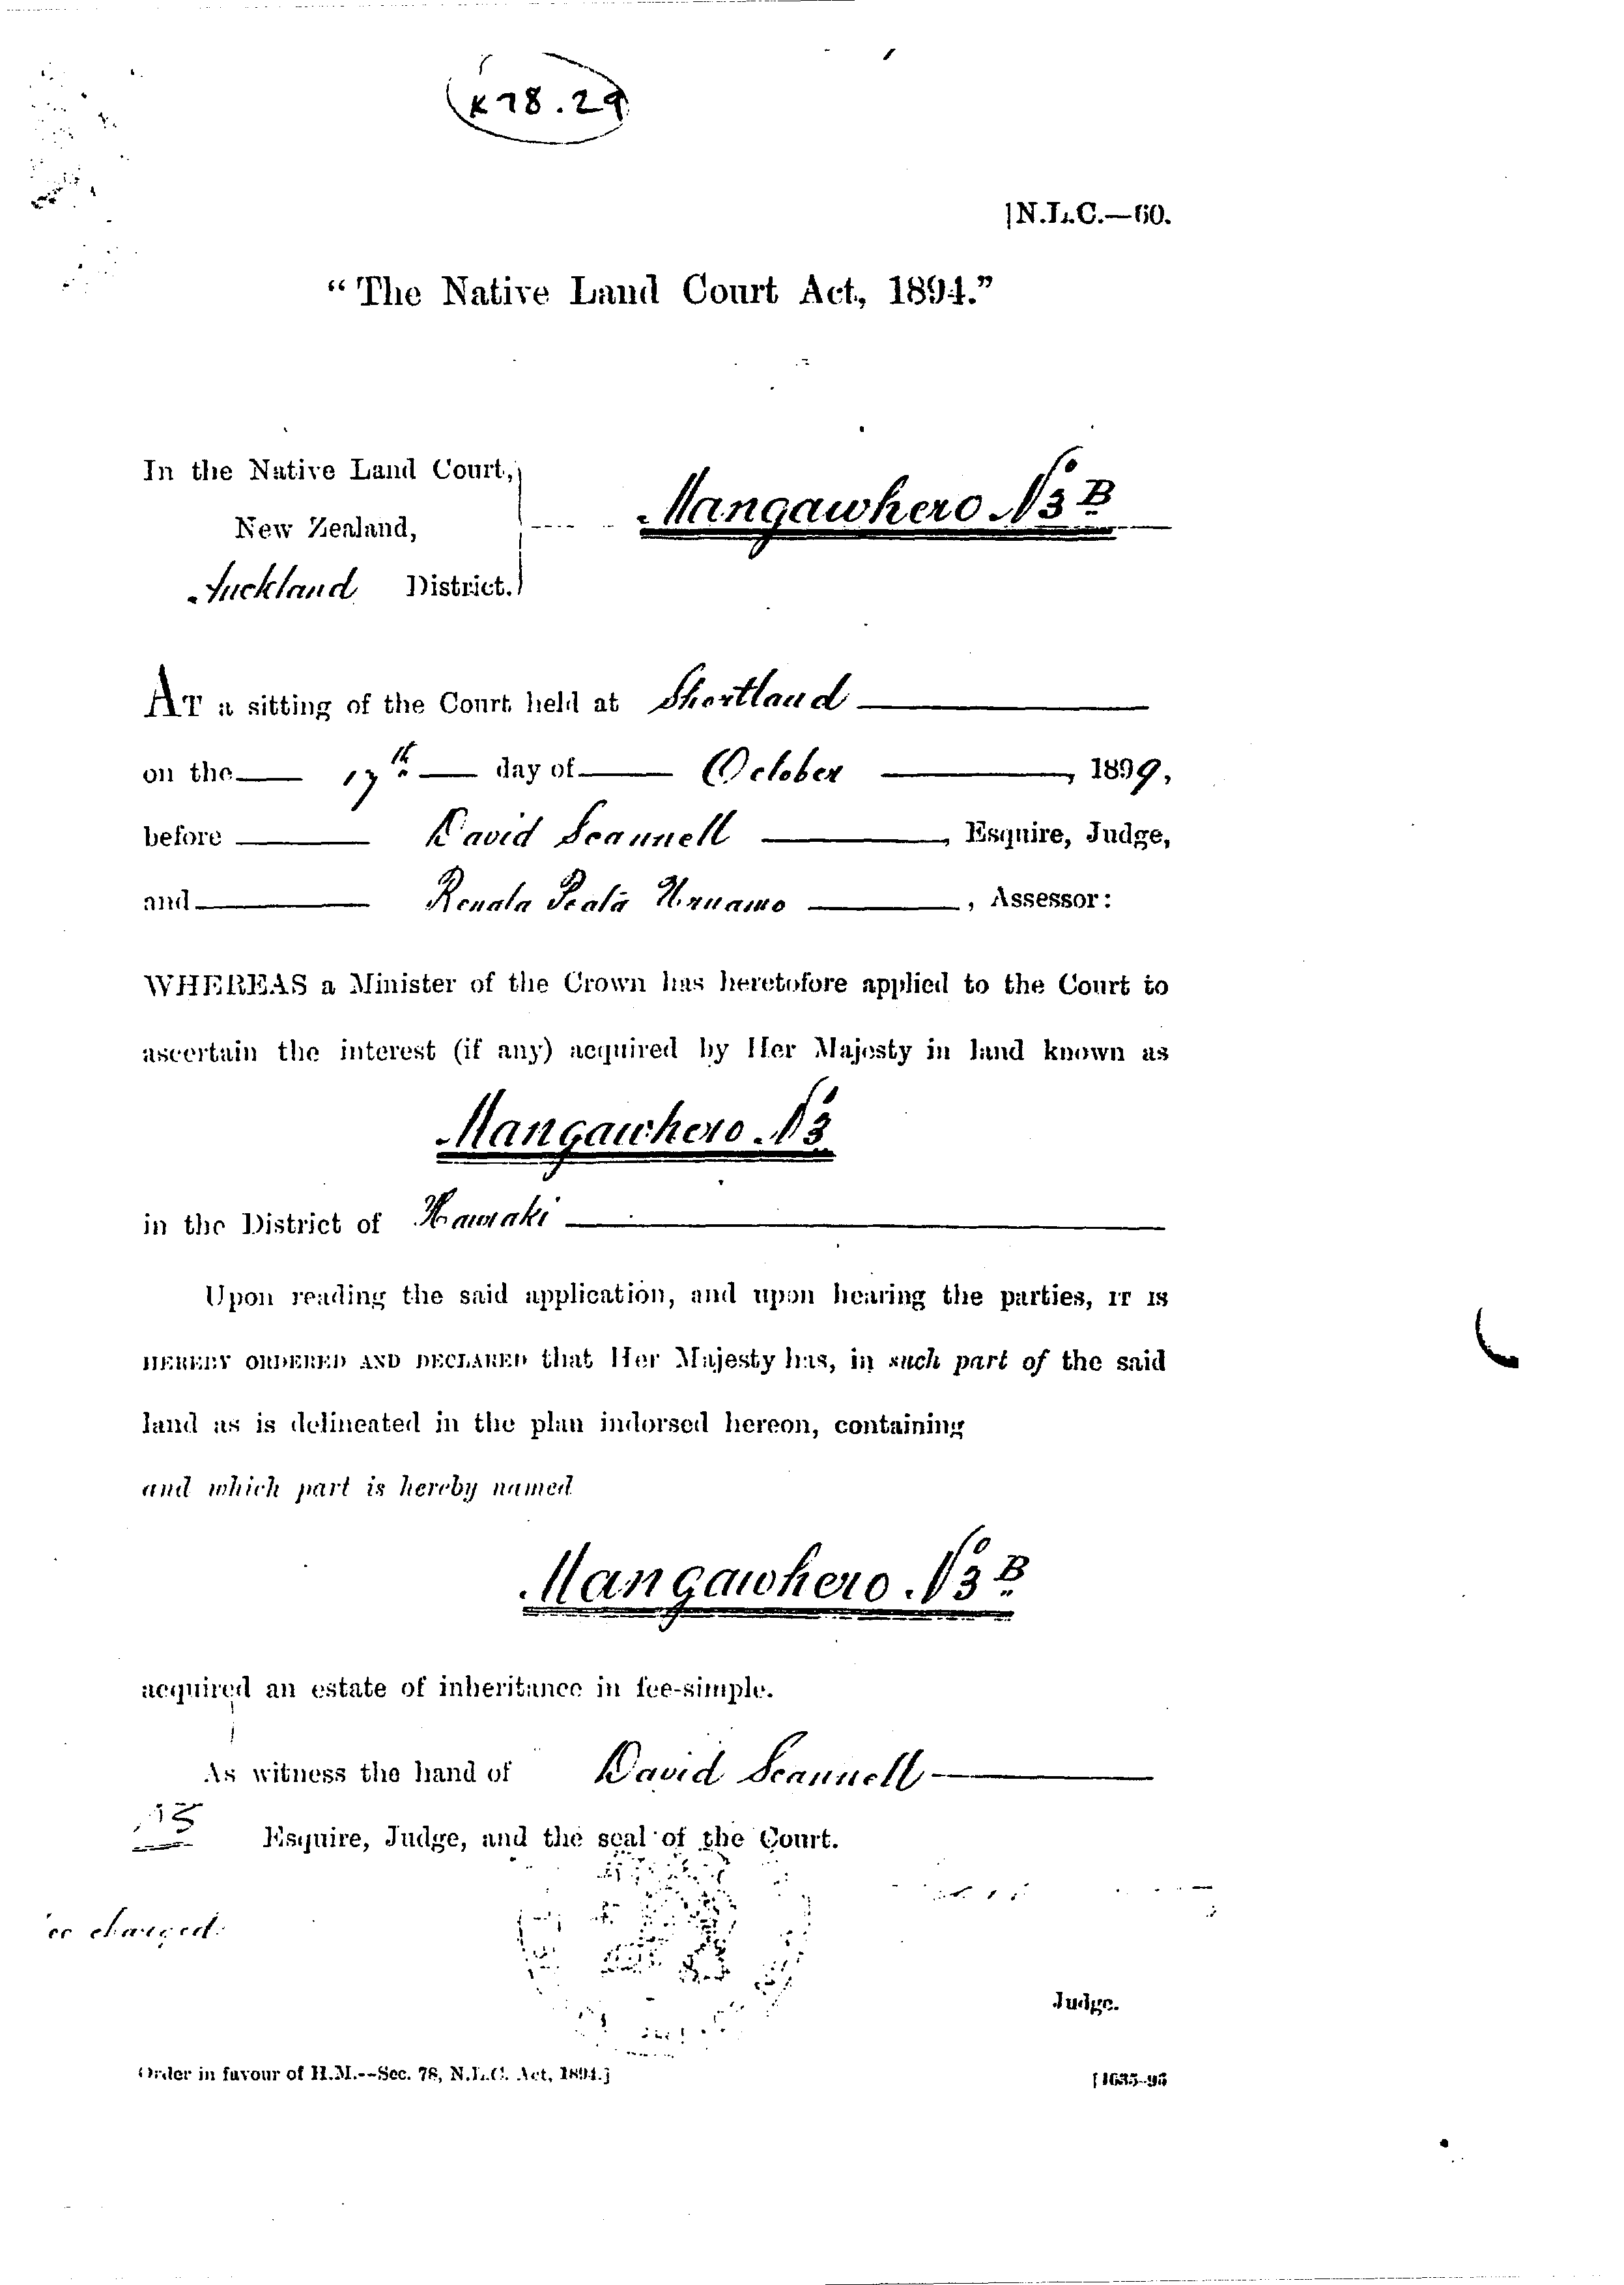 K78.29
[N.L.C.—60.
“The Native Land Court Act, 1894.”
In the Native Land Court,
New Zealand,
Auckland District.
Mangawhero No 3B
AT a sitting of the Court held at Shortland
on the 17th day of October, 1899,
before David Scannell, Esquire, Judge,
and Renata Peata, Assessor:
WHEREAS a Minister of the Crown has heretofore applied to the Court to
ascertain the interest (if any) acquired by Her Majesty in land known as
Mangawhero No 3
in the District of Hauraki
Upon reading the said application, and upon hearing the parties, IT IS
HEREBY ORDERED AND DECLARED that Her Majesty has, in such part of the said
land as is delineated in the plan indorsed hereon, containing
and which part is hereby named
Mangawhero No 3B
acquired an estate of inheritance in fee-simple.
As witness the hand of David Scannell
Esquire, Judge, and the seal of the Court.
charged.
Judge.
Order in favour of H.M.--Sec. 78, N.L.C. Act, 1894.]
[1635-95